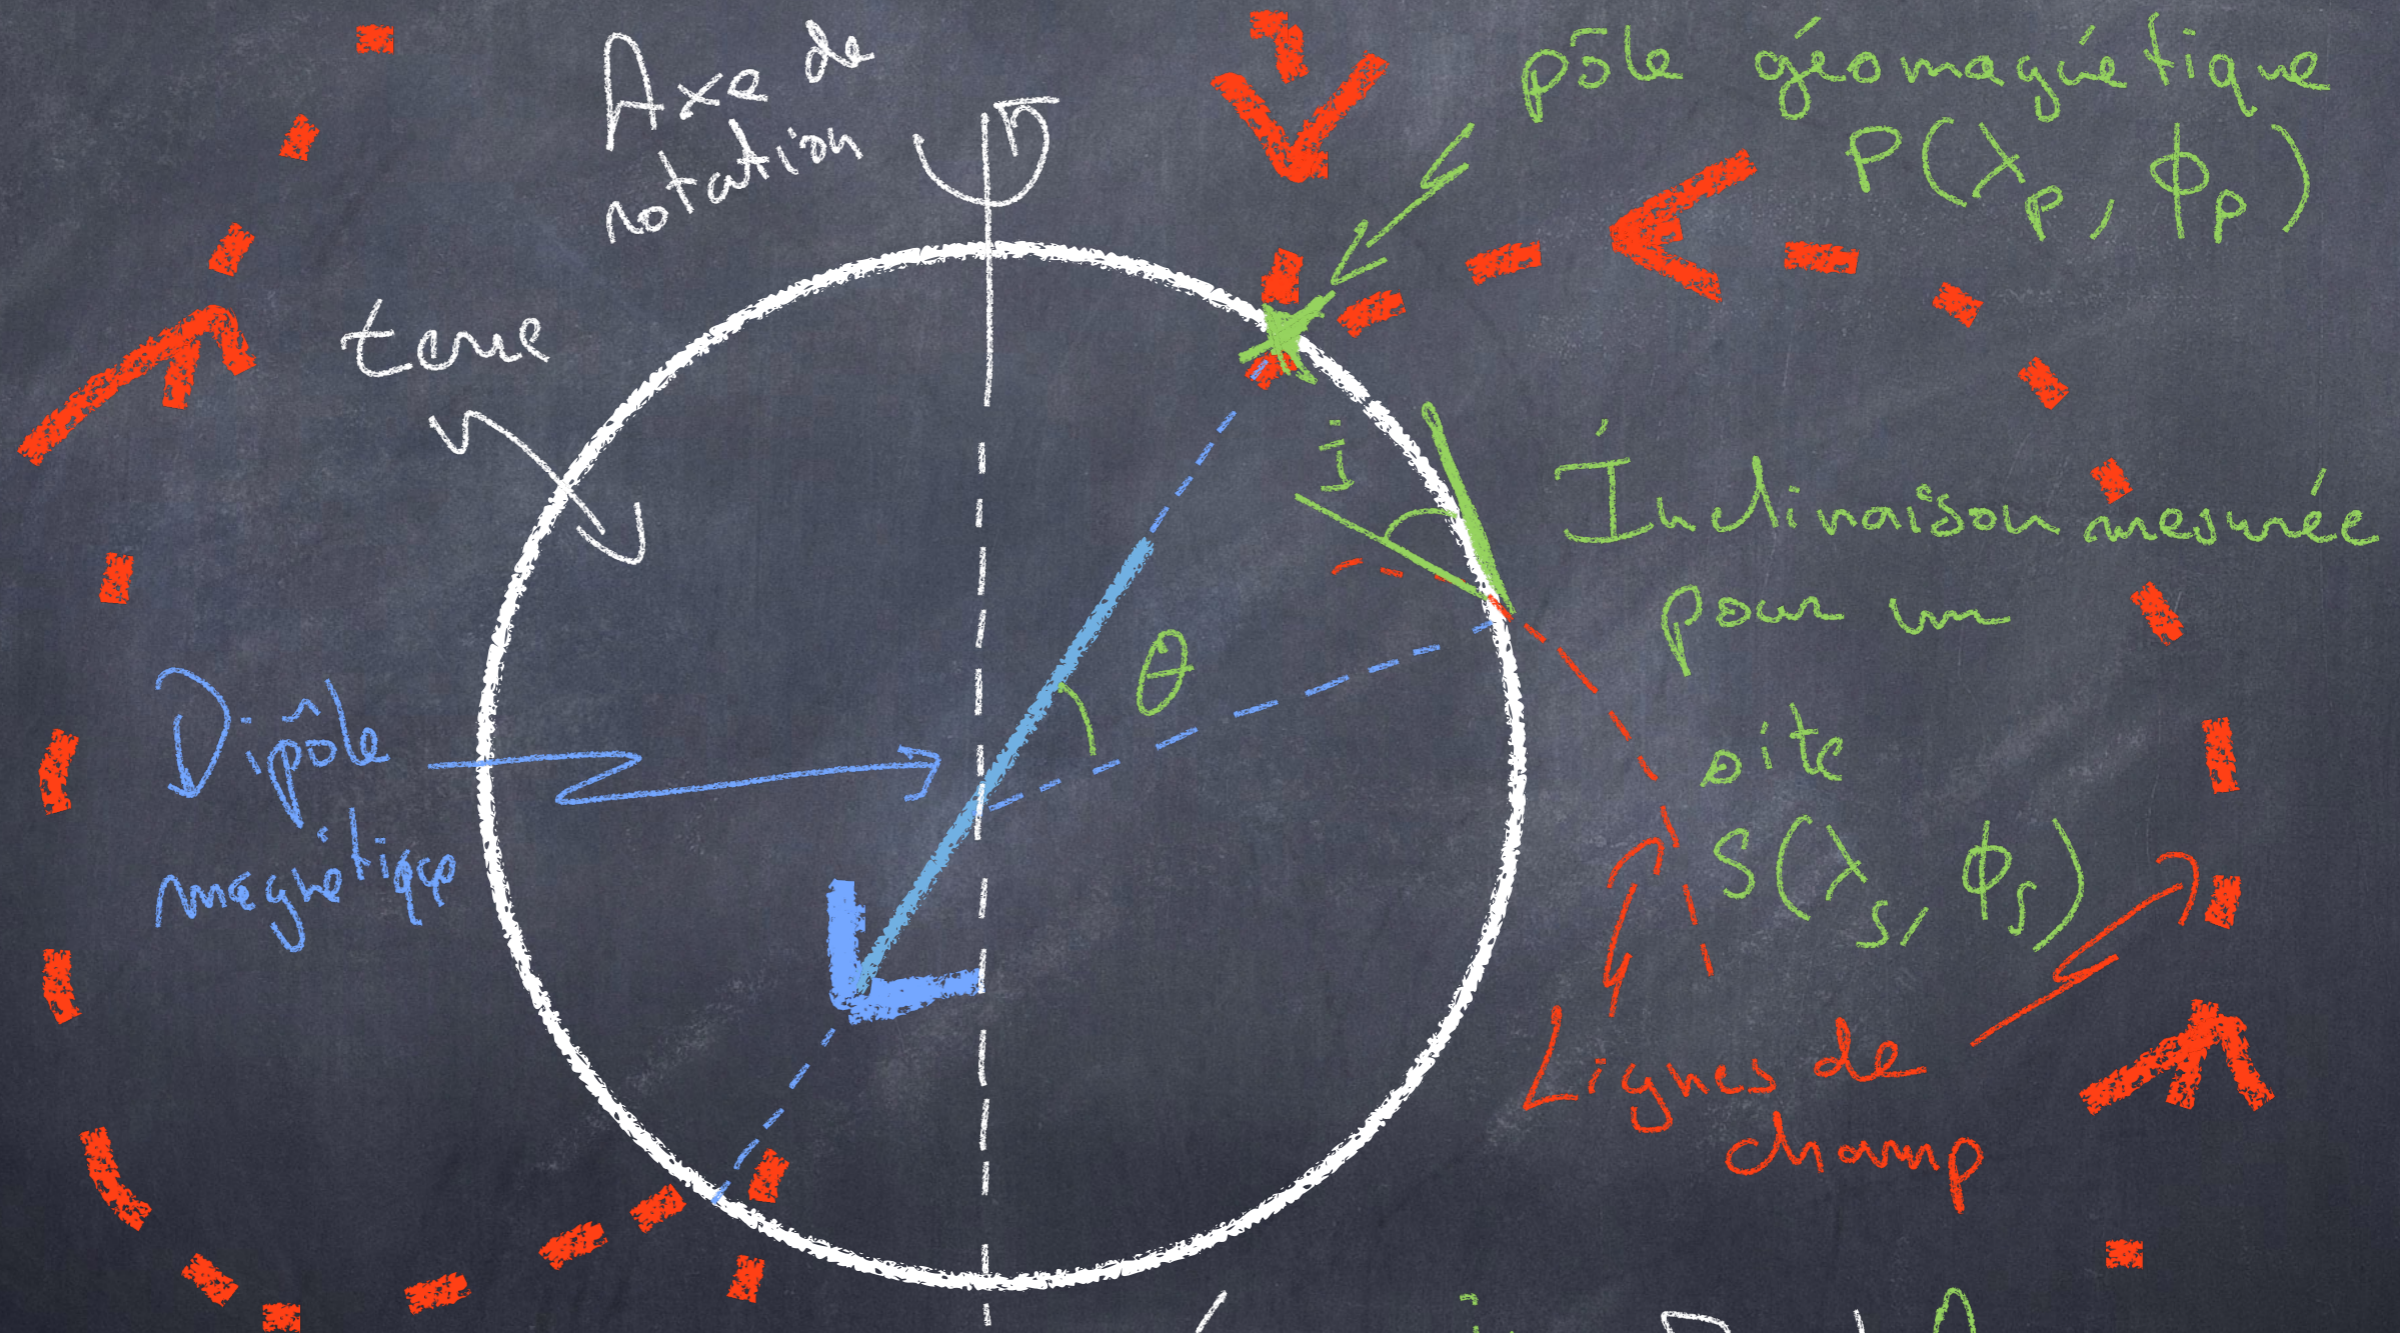 Axe de
rotation
pôle géomagnétique
P(λp, ϕp)
terre
i
Inclinaison mesurée
pour un
site
S(λs, ϕs)
θ
Dipôle
magnétique
Lignes de
champ